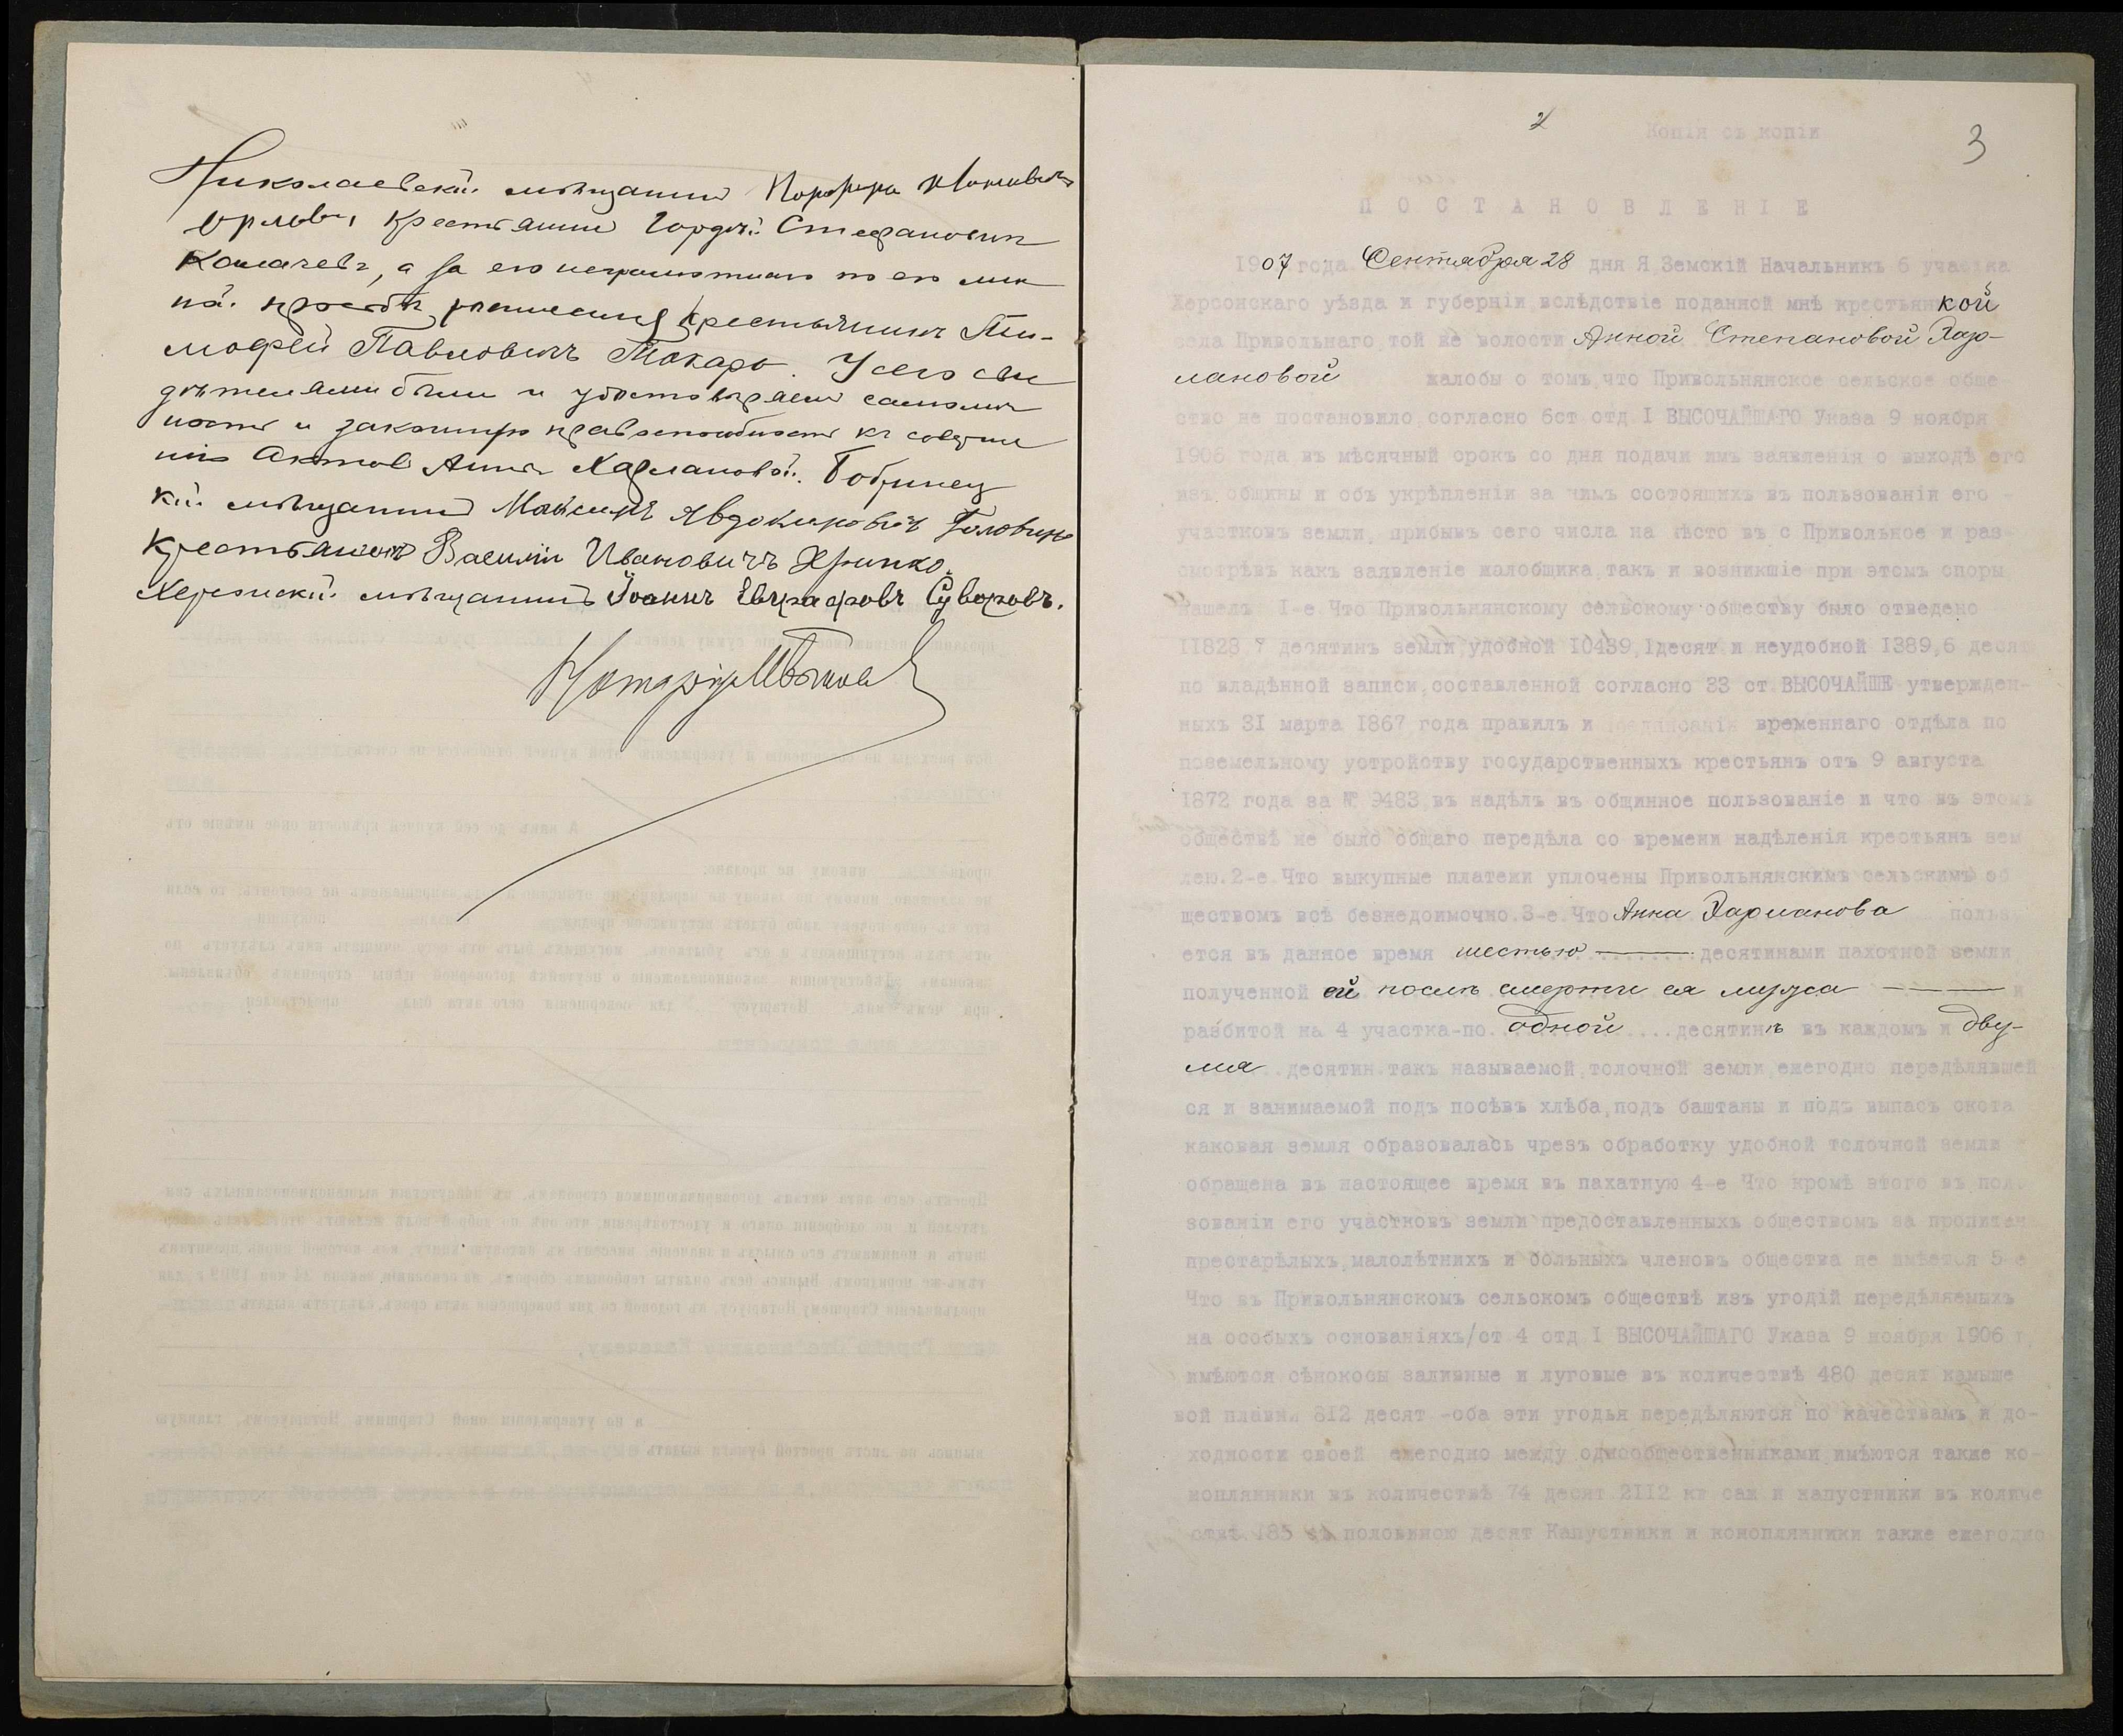 Николаевскій мѣщанинъ
Орловъ, Крестьянинъ Гордѣй Стефановичъ
Калачевъ, а за его неграмотностію по его лич
ной просьбѣ росписался крестьянинъ Ти-
мофей Павловичъ Токарь. У сего сви
дѣтелями были и удостовѣряемъ самолич
ность и законную правоспособность къ соверше
нію Актовъ Анны Харлановой. Бобринец
кій мѣщанинъ Максимъ Явдокимовъ Головинъ
Крестьянинъ Василій Ивановичъ Хрипко.
Херсонскій мѣщанинъ Іоаннъ Евграфовъ Суворовъ.
Нотаріусъ
2
Копія съ копіи
3
ПОСТАНОВЛЕНІЕ
1907 года Сентября 28 дня Я, Земскій Начальникъ 6 участка
Херсонскаго уѣзда и губерніи, вслѣдствіе поданной мнѣ крестьянкой
села Привольнаго, той же волости Анной Степановой Хар-
лановой жалобы о томъ, что Привольнянское сельское обще-
ство не постановило, согласно 6ст отд I ВЫСОЧАЙШАГО Указа 9 ноября
1906 года въ мѣсячный срокъ со дня подачи имъ заявленія о выходѣ его
изъ общины и объ укрѣпленіи за нимъ состоящихъ въ пользованіи его -
участковъ земли, прибывъ сего числа на мѣсто въ с Привольное и раз-
смотрѣвъ какъ заявленіе жалобщика, такъ и возникшіе при этомъ споры
нашелъ I-е Что Привольнянскому сельскому обществу было отведено
11828,7 десятинъ земли, удобной 10439,1десят и неудобной 1389,6 десят
по владѣнной записи, составленной согласно 33 ст ВЫСОЧАЙШЕ утвержден-
ныхъ 31 марта 1867 года правилъ и предписанія временнаго отдѣла по
поземельному устройству государственныхъ крестьянъ отъ 9 августа
1872 года за № 9483, въ надѣлъ въ общинное пользованіе и что въ этомъ
обществѣ не было общаго передѣла со времени надѣленія крестьянъ зем
лею. 2-е Что выкупные платежи уплочены Привольнянскимъ сельскимъ об
ществомъ всѣ безнедоимочно. 3-е. Что Анна Харланова польз
ется въ данное время шестью десятинами пахотной земли,
полученной ей послѣ смерти ея мужа и
разбитой на 4 участка-по одной десятинѣ въ каждомъ и дву-
мя десятин такъ называемой, толочной земли, ежегодно передѣлявшей
ся и занимаемой подъ посѣвъ хлѣба, подъ баштаны и подъ выпасъ скота
каковая земля образовалась чрезъ обработку удобной толочной земли
обращена въ настоящее время въ пахатную 4-е Что кромѣ этого въ поль
зованіи его участковъ земли предоставленныхъ обществомъ за пропитан
престарѣлыхъ, малолѣтнихъ и больныхъ членовъ общества не имѣется 5-е
Что въ Привольнянскомъ сельскомъ обществѣ изъ угодій передѣляемыхъ
на особыхъ основаніяхъ/ст 4 отд I ВЫСОЧАЙШАГО Указа 9 ноября 1906 г
имѣются сѣнокосы заливные и луговые въ количествѣ 480 десят камыше
вой плавни 812 десят -оба эти угодья передѣляются по качествамъ и до-
ходности своей ежегодно между однообщественниками, имѣются также ко-
нопляники въ количествѣ 74 десят 2112 кв саж и капустники въ количе
ствѣ 185 съ половиною десят Капустники и конопляники также ежегодно